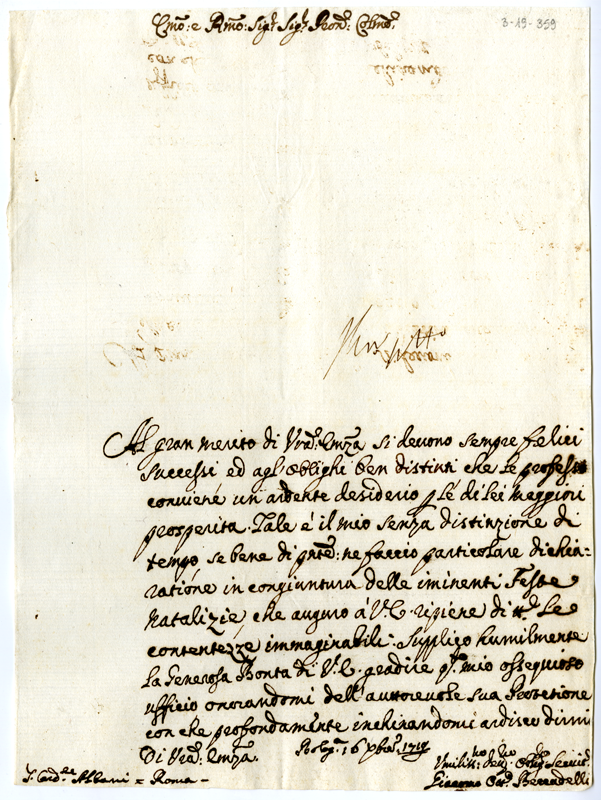 3-19-359
Emõ: e Rmõ: Sigr: Sigr: Pron: Colmo:
Al gran merito di Vrã: Emzã si devono sempre felici
successi ed agl'oblighi ben distinti che le professo
conviene un ardente desiderio p le di lei maggiori
prosperita. Tale é il mio senza distinzione di
tempo se bene di pnte: ne faccio particolare dichia=
ratione in congiuntura delle iminenti Feste
Natalizie, che auguro á V: E. ripiene di tt: le
contentezze immaginabili: Supplico humilmente
la Generosa Bontà di V: E. gradire qto mio ossequioso
ufficio onorandomi dell'autorevole sua Protetione
con che profondamente inchinandomi ardisco dirmi
Di Vrã: Emzã.
Bolga: 16 Xbre: 1719
Umiliss: Devmo Oblig: Servit:
Giacomo Beccadelli
S: Card:le Albani = Roma -